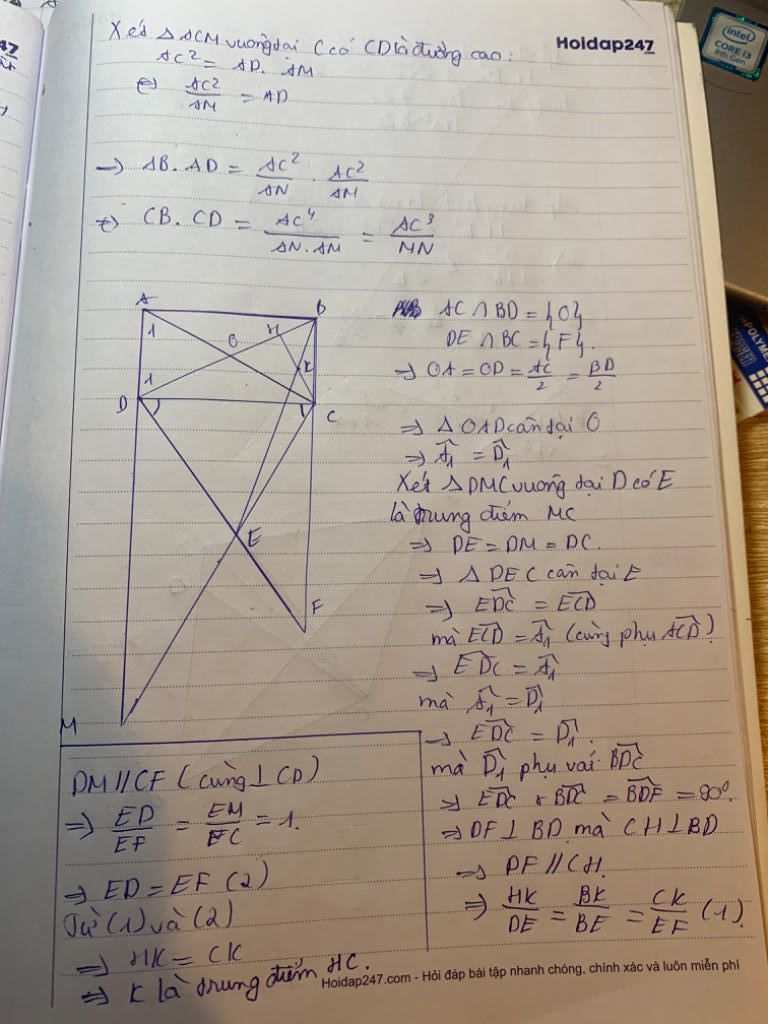 Xét Δ ACM vuông tại C có CD là đường cao:
Hoidap247
AC² = AD. AM
⇔ AC²/AM = AD
→ AB. AD = AC²/AN . AC²/AM
⇔ CB. CD = AC⁴/AN. AM = AC³/MN
A
B
H
1
O
K
1
D
C
E
F
M
AC ∩ BD = {O}
DE ∩ BC = {F}.
⇒ OA = OD = AC/2 = BD/2
⇒ Δ OAD cân tại O
⇒ Â₁ = D̂₁
Xét Δ DMC vuông tại D có E
là trung điểm MC
⇒ DE = DM = DC.
⇒ Δ DEC cân tại E
⇒ EDC = ECD
mà ECD = Â₁ (cùng phụ ACD)
⇒ EDC = Â₁
mà Â₁ = D̂₁
⇒ EDC = D̂₁.
mà D̂₁ phụ với BDC
⇒ EDC + BDC = BDF = 90°.
⇒ DF ⊥ BD mà CH ⊥ BD
⇒ DF // CH.
⇒ HK/DE = BK/BE = CK/EF (1).
DM // CF (cùng ⊥ CD)
⇒ ED/EF = EM/EC = 1.
⇒ ED = EF (2)
Từ (1) và (2)
⇒ HK = CK
⇒ K là trung điểm HC.
Hoidap247.com - Hỏi đáp bài tập nhanh chóng, chính xác và luôn miễn phí
intel
CORE i3
8th Gen